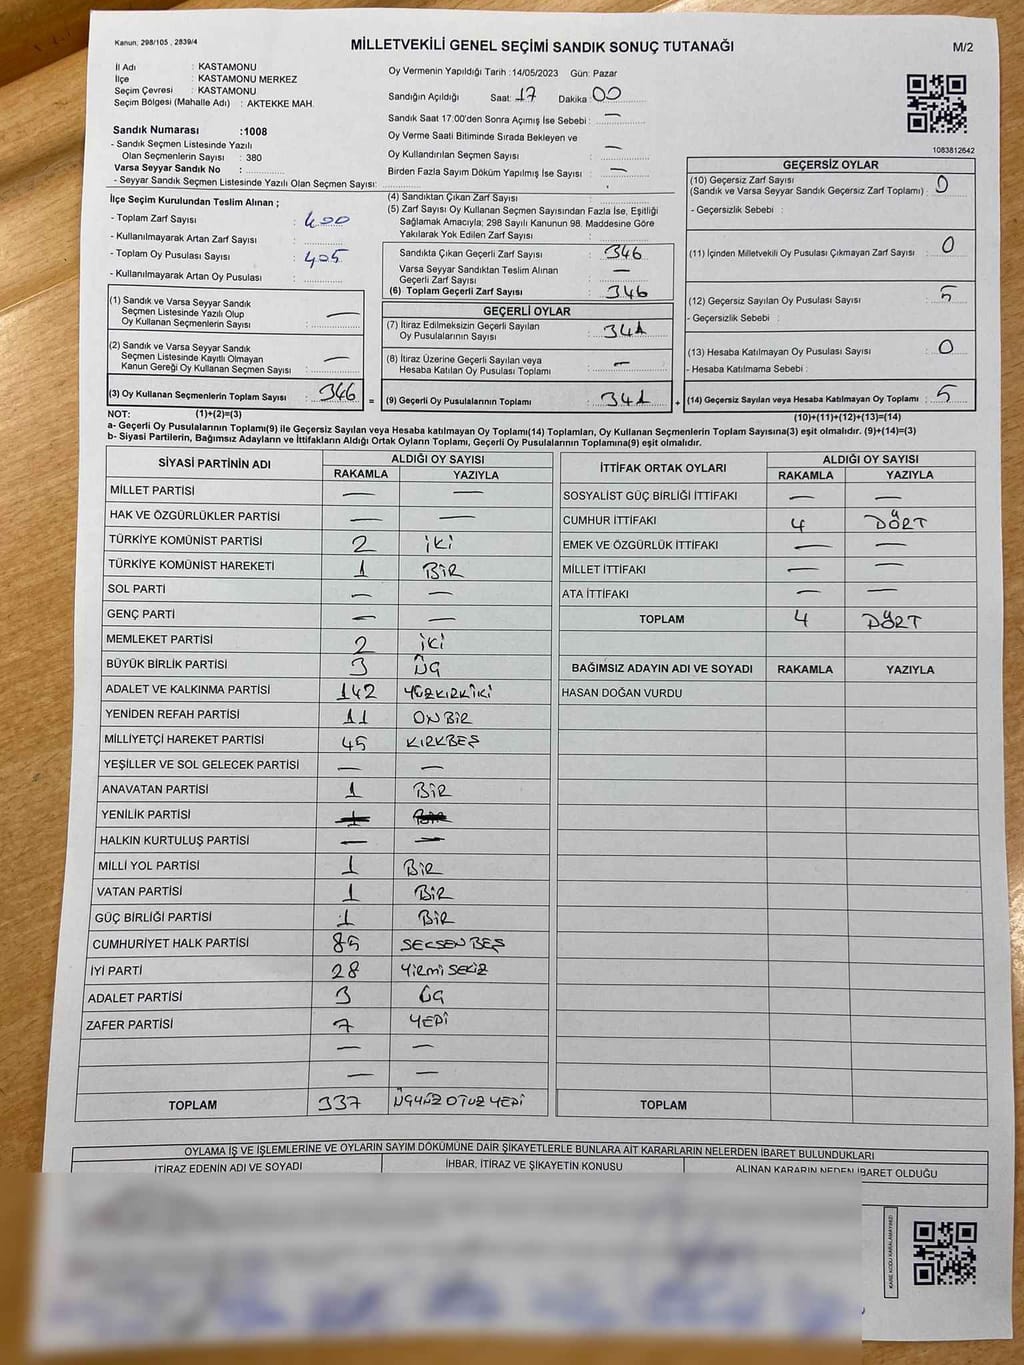 Kanun, 298/105 , 2839/4
MİLLETVEKİLİ GENEL SEÇİMİ SANDIK SONUÇ TUTANAĞI
M/2
İl Adı : KASTAMONU
İlçe : KASTAMONU MERKEZ
Seçim Çevresi : KASTAMONU
Seçim Bölgesi (Mahalle Adı) : AKTEKKE MAH.
Sandık Numarası :1008
- Sandık Seçmen Listesinde Yazılı
Olan Seçmenlerin Sayısı : 380
Varsa Seyyar Sandık No :
- Seyyar Sandık Seçmen Listesinde Yazılı Olan Seçmen Sayısı:
Oy Vermenin Yapıldığı Tarih : 14/05/2023 Gün: Pazar
Sandığın Açıldığı Saat: 17 Dakika : 00
Sandık Saat 17:00'den Sonra Açımış İse Sebebi : —
Oy Verme Saati Bitiminde Sırada Bekleyen ve
Oy Kullandırılan Seçmen Sayısı : —
Birden Fazla Sayım Döküm Yapılmış İse Sayısı : —
1083812642
İlçe Seçim Kurulundan Teslim Alınan ;
- Toplam Zarf Sayısı : 400
- Kullanılmayarak Artan Zarf Sayısı :
- Toplam Oy Pusulası Sayısı : 405
- Kullanılmayarak Artan Oy Pusulası :
(1) Sandık ve Varsa Seyyar Sandık
Seçmen Listesinde Yazılı Olup
Oy Kullanan Seçmenlerin Sayısı : —
(2) Sandık ve Varsa Seyyar Sandık
Seçmen Listesinde Kayıtlı Olmayan
Kanun Gereği Oy Kullanan Seçmen Sayısı : —
(3) Oy Kullanan Seçmenlerin Toplam Sayısı : 346 =
(4) Sandıktan Çıkan Zarf Sayısı :
(5) Zarf Sayısı Oy Kullanan Seçmen Sayısından Fazla İse, Eşitliği
Sağlamak Amacıyla; 298 Sayılı Kanunun 98. Maddesine Göre
Yakılarak Yok Edilen Zarf Sayısı :
Sandıkta Çıkan Geçerli Zarf Sayısı : 346
Varsa Seyyar Sandıktan Teslim Alınan
Geçerli Zarf Sayısı : —
(6) Toplam Geçerli Zarf Sayısı : 346
GEÇERLİ OYLAR
(7) İtiraz Edilmeksizin Geçerli Sayılan
Oy Pusulalarının Sayısı : 341
(8) İtiraz Üzerine Geçerli Sayılan veya
Hesaba Katılan Oy Pusulası Toplamı : —
(9) Geçerli Oy Pusulalarının Toplamı : 341 +
GEÇERSİZ OYLAR
(10) Geçersiz Zarf Sayısı
(Sandık ve Varsa Seyyar Sandık Geçersiz Zarf Toplamı) : 0
- Geçersizlik Sebebi :
(11) İçinden Milletvekili Oy Pusulası Çıkmayan Zarf Sayısı : 0
(12) Geçersiz Sayılan Oy Pusulası Sayısı : 5
- Geçersizlik Sebebi :
(13) Hesaba Katılmayan Oy Pusulası Sayısı : 0
- Hesaba Katılmama Sebebi :
(14) Geçersiz Sayılan veya Hesaba Katılmayan Oy Toplamı : 5
NOT: (1)+(2)=(3)
(10)+(11)+(12)+(13)=(14)
a- Geçerli Oy Pusulalarının Toplamı(9) ile Geçersiz Sayılan veya Hesaba katılmayan Oy Toplamı(14) Toplamları, Oy Kullanan Seçmenlerin Toplam Sayısına(3) eşit olmalıdır. (9)+(14)=(3)
b- Siyasi Partilerin, Bağımsız Adayların ve İttifakların Aldığı Ortak Oyların Toplamı, Geçerli Oy Pusulalarının Toplamına(9) eşit olmalıdır.
SİYASİ PARTİNİN ADI ALDIĞI OY SAYISI
RAKAMLA YAZIYLA
MİLLET PARTİSİ — —
HAK VE ÖZGÜRLÜKLER PARTİSİ — —
TÜRKİYE KOMÜNİST PARTİSİ 2 İKİ
TÜRKİYE KOMÜNİST HAREKETİ 1 BİR
SOL PARTİ — —
GENÇ PARTİ — —
MEMLEKET PARTİSİ 2 İKİ
BÜYÜK BİRLİK PARTİSİ 3 ÜÇ
ADALET VE KALKINMA PARTİSİ 142 YÜZKIRKİKİ
YENİDEN REFAH PARTİSİ 11 ONBİR
MİLLİYETÇİ HAREKET PARTİSİ 45 KIRKBEŞ
YEŞİLLER VE SOL GELECEK PARTİSİ — —
ANAVATAN PARTİSİ 1 BİR
YENİLİK PARTİSİ 1 BİR
HALKIN KURTULUŞ PARTİSİ — —
MİLLİ YOL PARTİSİ 1 BİR
VATAN PARTİSİ 1 BİR
GÜÇ BİRLİĞİ PARTİSİ 1 BİR
CUMHURİYET HALK PARTİSİ 85 SECSEN BEŞ
İYİ PARTİ 28 YİRMİ SEKİZ
ADALET PARTİSİ 3 ÜÇ
ZAFER PARTİSİ 7 YEDİ
— —
— —
TOPLAM 337 ÜÇYÜZ OTUZ YEDİ
İTTİFAK ORTAK OYLARI ALDIĞI OY SAYISI
RAKAMLA YAZIYLA
SOSYALİST GÜÇ BİRLİĞİ İTTİFAKI — —
CUMHUR İTTİFAKI 4 DÖRT
EMEK VE ÖZGÜRLÜK İTTİFAKI — —
MİLLET İTTİFAKI — —
ATA İTTİFAKI — —
TOPLAM 4 DÖRT
BAĞIMSIZ ADAYIN ADI VE SOYADI RAKAMLA YAZIYLA
HASAN DOĞAN VURDU
TOPLAM
OYLAMA İŞ VE İŞLEMLERİNE VE OYLARIN SAYIM DÖKÜMÜNE DAİR ŞİKAYETLERLE BUNLARA AİT KARARLARIN NELERDEN İBARET BULUNDUKLARI
İTİRAZ EDENİN ADI VE SOYADI İHBAR, İTİRAZ VE ŞİKAYETİN KONUSU ALINAN KARARIN NEDEN İBARET OLDUĞU
KARE KODU KARALAMAYINIZ!